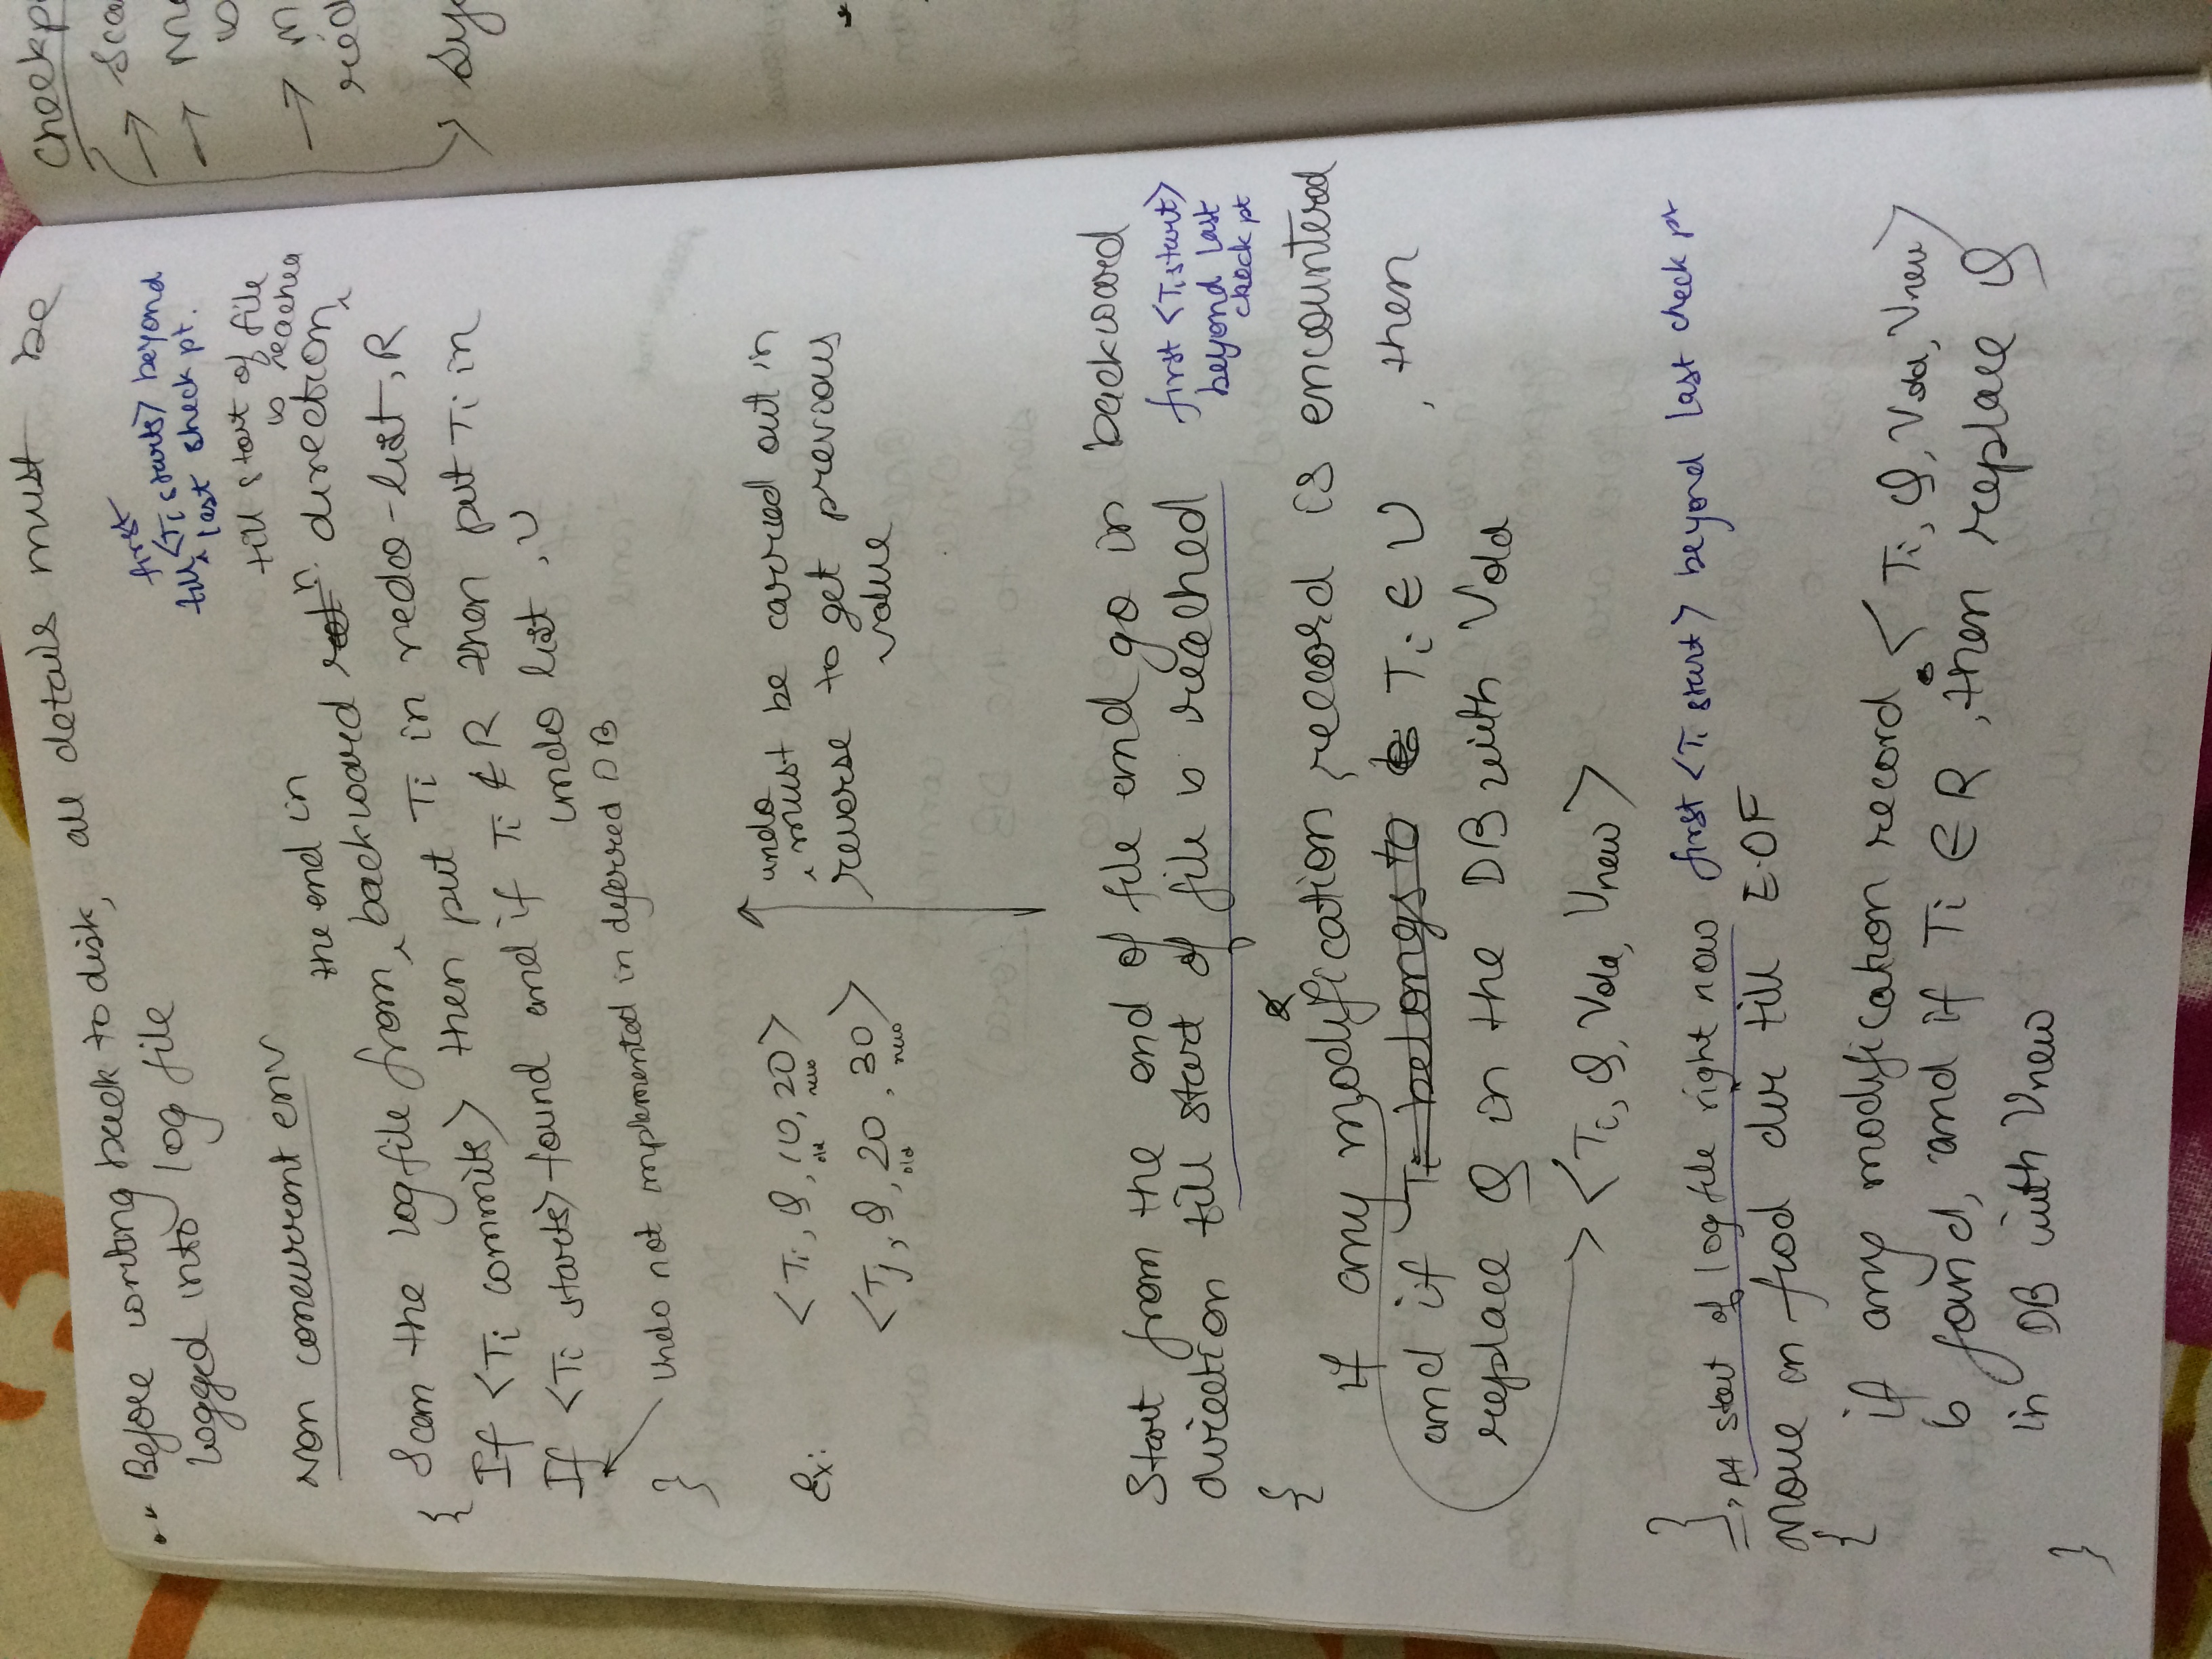 ∴ Before writing back to disk, all details must be
logged into log file
first
till <Ti starts> beyond
last check pt.
till start of file
is reached
Non concurrent env
the end in
{ Scan the log file from backward direction,
If <Ti commits> then put Ti in redo-list, R
If <Ti starts> found and if Ti ∉ R then put Ti in
undo list, U
Undo not implemented in deferred DB
}
Ex: <Ti, Q, 10, 20>
old new
<Tj, Q, 20, 30>
old new
undo
must be carried out in
reverse to get previous
value
Start from the end of file and go in backward
direction till start of file is reached
first <Ti start>
beyond last
check pt
{
if any modification record is encountered
and if Ti belongs to Ti ∈ U, then
replace Q in the DB with Vold
<Ti, Q, Vold, Vnew>
}
At start of log file right now first <Ti start> beyond last check pt
Move in fwd dir till E.OF
{
if any modification record <Ti, Q, Vold, Vnew>
is found, and if Ti ∈ R, then replace Q
in DB with Vnew
}
Checkp
→ Sca
→ M
→ M
red